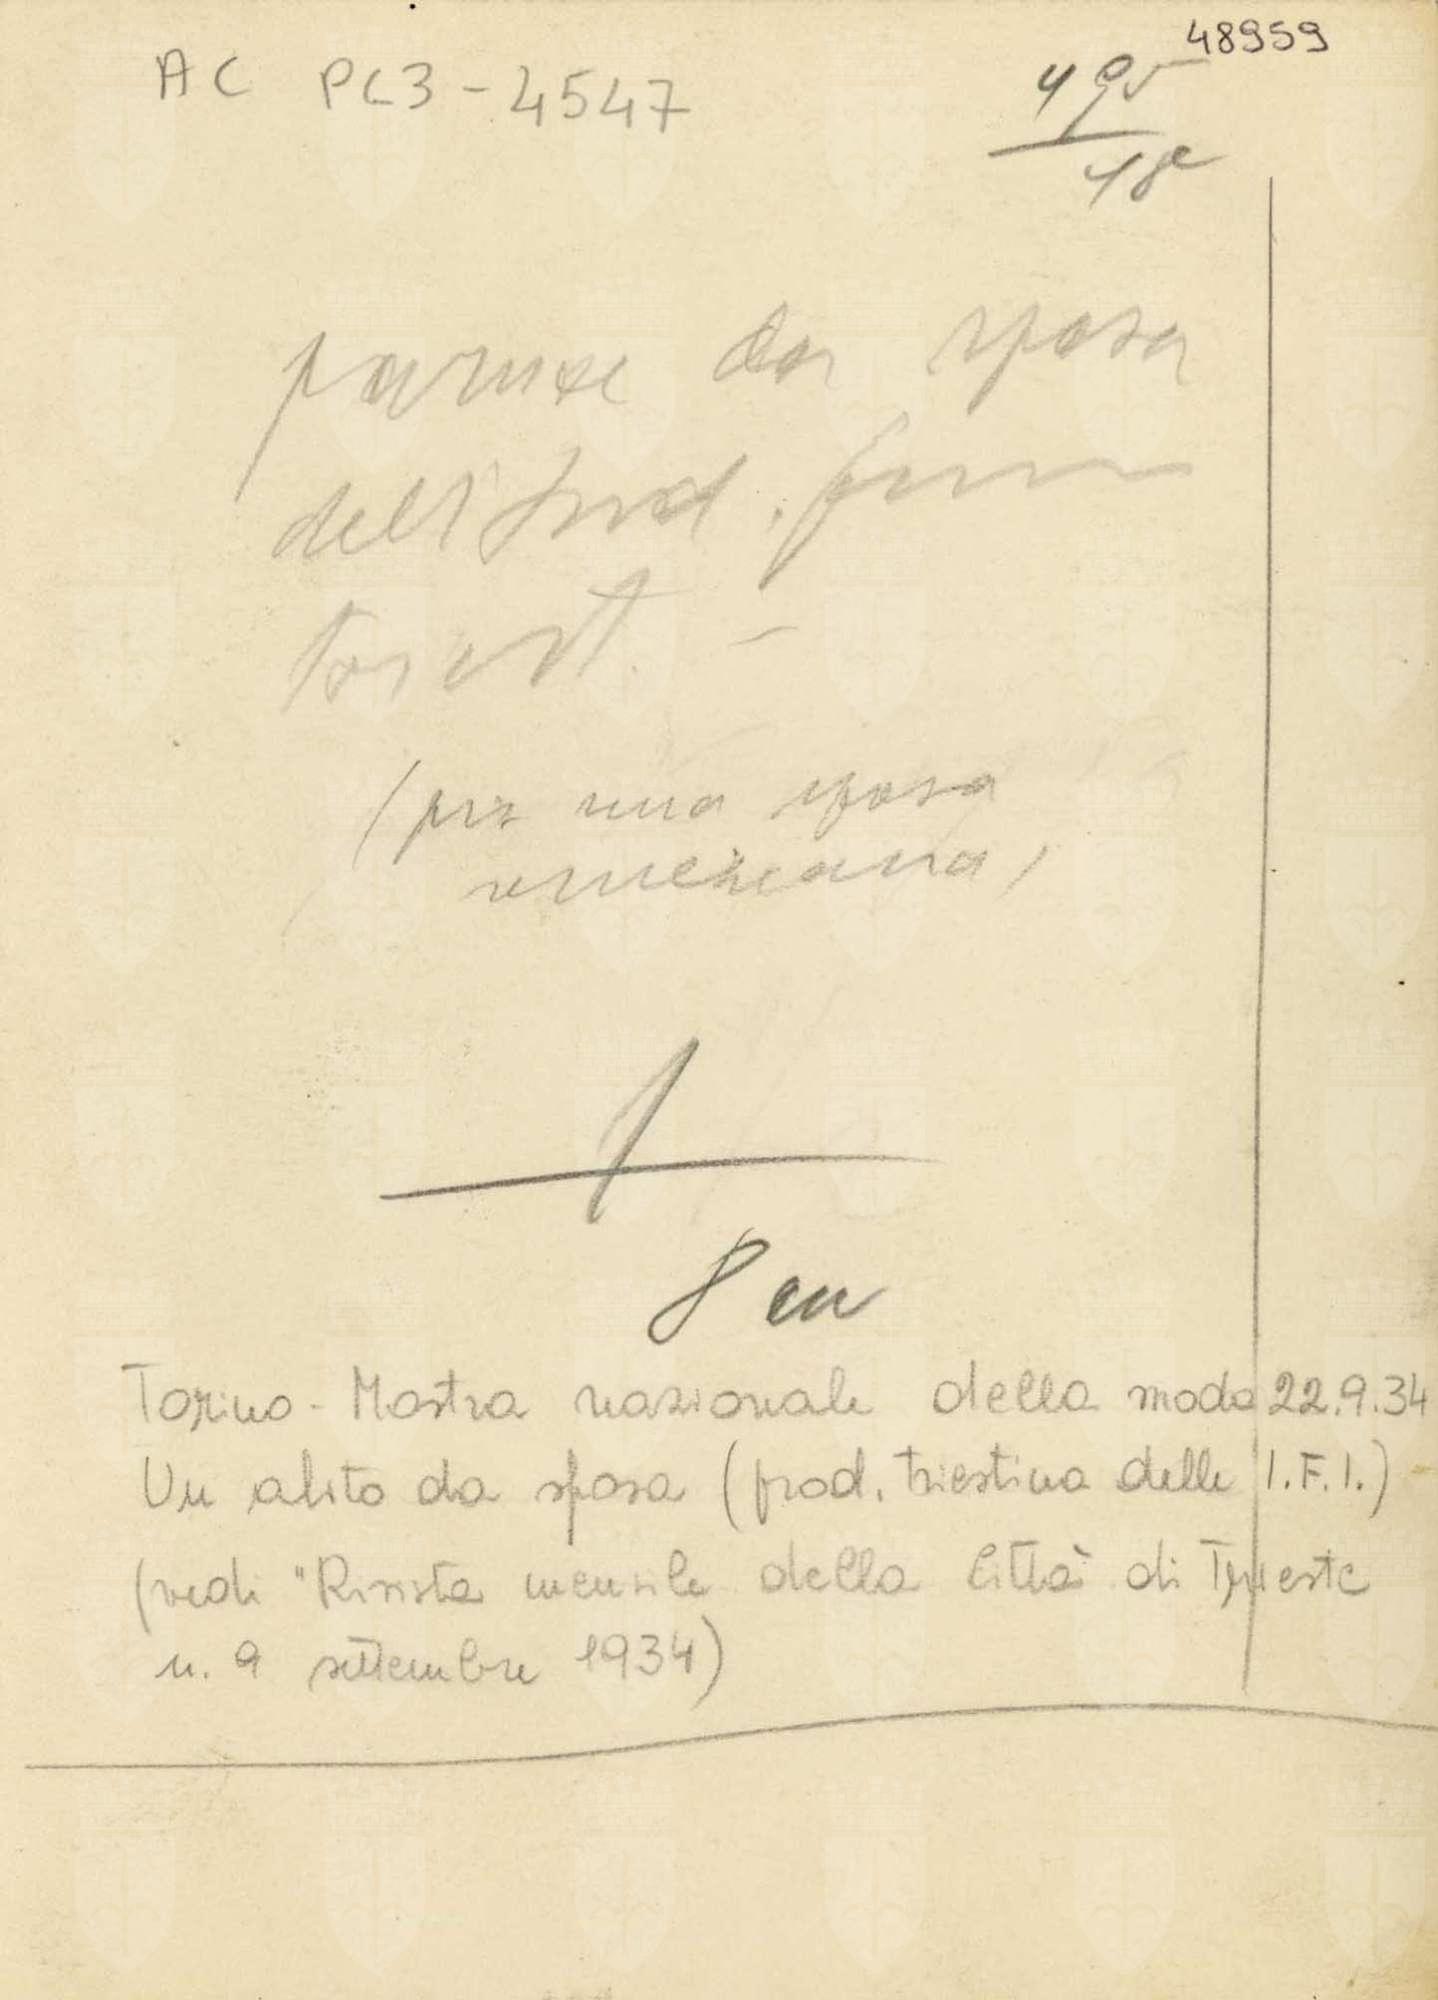 48959
AC PC3-4547
da sposa
dell'Ind.
(per una sposa
8 cm
Torino - Mostra nazionale della moda 22.9.34
Un abito da sposa (prod. triestina delle I.F.I.)
(vedi "Rivista mensile della Città di Trieste
n. 9 settembre 1934)